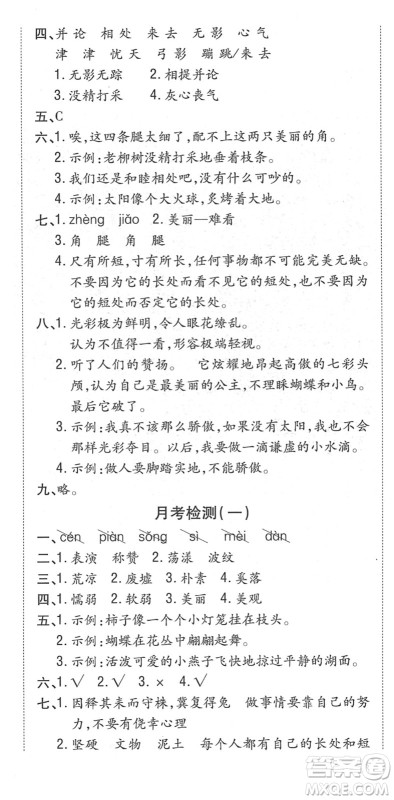 四、并论　相处　来去　无影　心气
津　津　忧天　弓影　蹦跳/来去
1. 无影无踪　2. 相提并论
3. 没精打采　4. 灰心丧气
五、C
六、1. 唉，这四条腿太细了，怎么配得上这两只美丽的角。
2. 示例：老柳树没精打采地垂着枝条。
3. 我们要和睦相处吧，没有吵架。
4. 示例：太阳像个大火球，炙烤着大地。
七、1. zhèng　jiǎo　2. 美丽—难看
3. 角　腿　角　腿
4. 尺有所短，寸有所长，任何事物都不可能完美无缺。
不要因为它的长处而看不见它的短处，也不要因为
它的短处而否定它的长处。
八、1. 光彩极为鲜明，令人眼花缭乱。
认为不值得一看，形容极端轻视。
2. 听了人们的赞扬。　它炫耀地昂起高高的七彩头
颅，认为自己是最美丽的公主，不理睬蝴蝶和小鸟。
最后它不见了。
3. 示例：我真不该那么骄傲，如果没有太阳，我就不会
那样光彩夺目。以后，我要做一滴谦虚的小水滴。
4. 示例：做人要脚踏实地，不能骄傲。
九、略。
月考检测(一)
一、cén　piàn　sǒng　sì　mèi　dàn
二、1. 表演　称赞　2. 荡漾　波纹
三、1. 荒凉　2. 废墟　3. 朴素　4. 奚落
四、1. 懦弱　2. 软弱　3. 美丽　4. 美观
五、1. 示例：柿子像一个个小灯笼挂在枝头。
2. 示例：蝴蝶在花丛中翩翩起舞。
3. 示例：活泼可爱的小燕子飞快地掠过平静的湖面。
六、1. √　2. √　3. ×　4. √
七、1. 因释其耒而守株，冀复得兔　做事情要靠自己的努
力，不要有侥幸心理
2. 坚硬　文物　泥土　每个人都有自己的长处和短